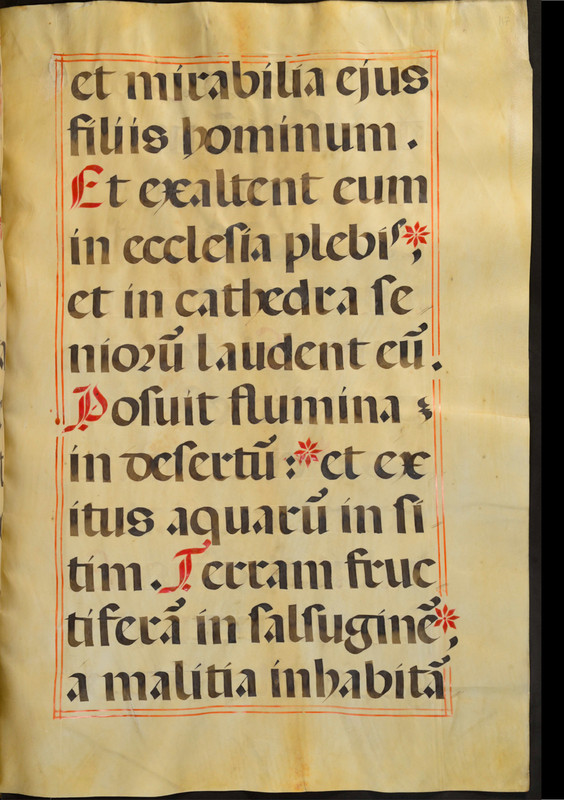 et mirabilia ejus
filiis hominum .
Et exaltent eum
in eccleſia plebiſ*;
et in cathedra ſe
nioꝛū laudent eū .
Poſuit flumina
in deſertū :* et ex
itus aquarū in ſi
tim . Terram fruc
tiferā in ſalſuginē*,
a malitia inhabitā